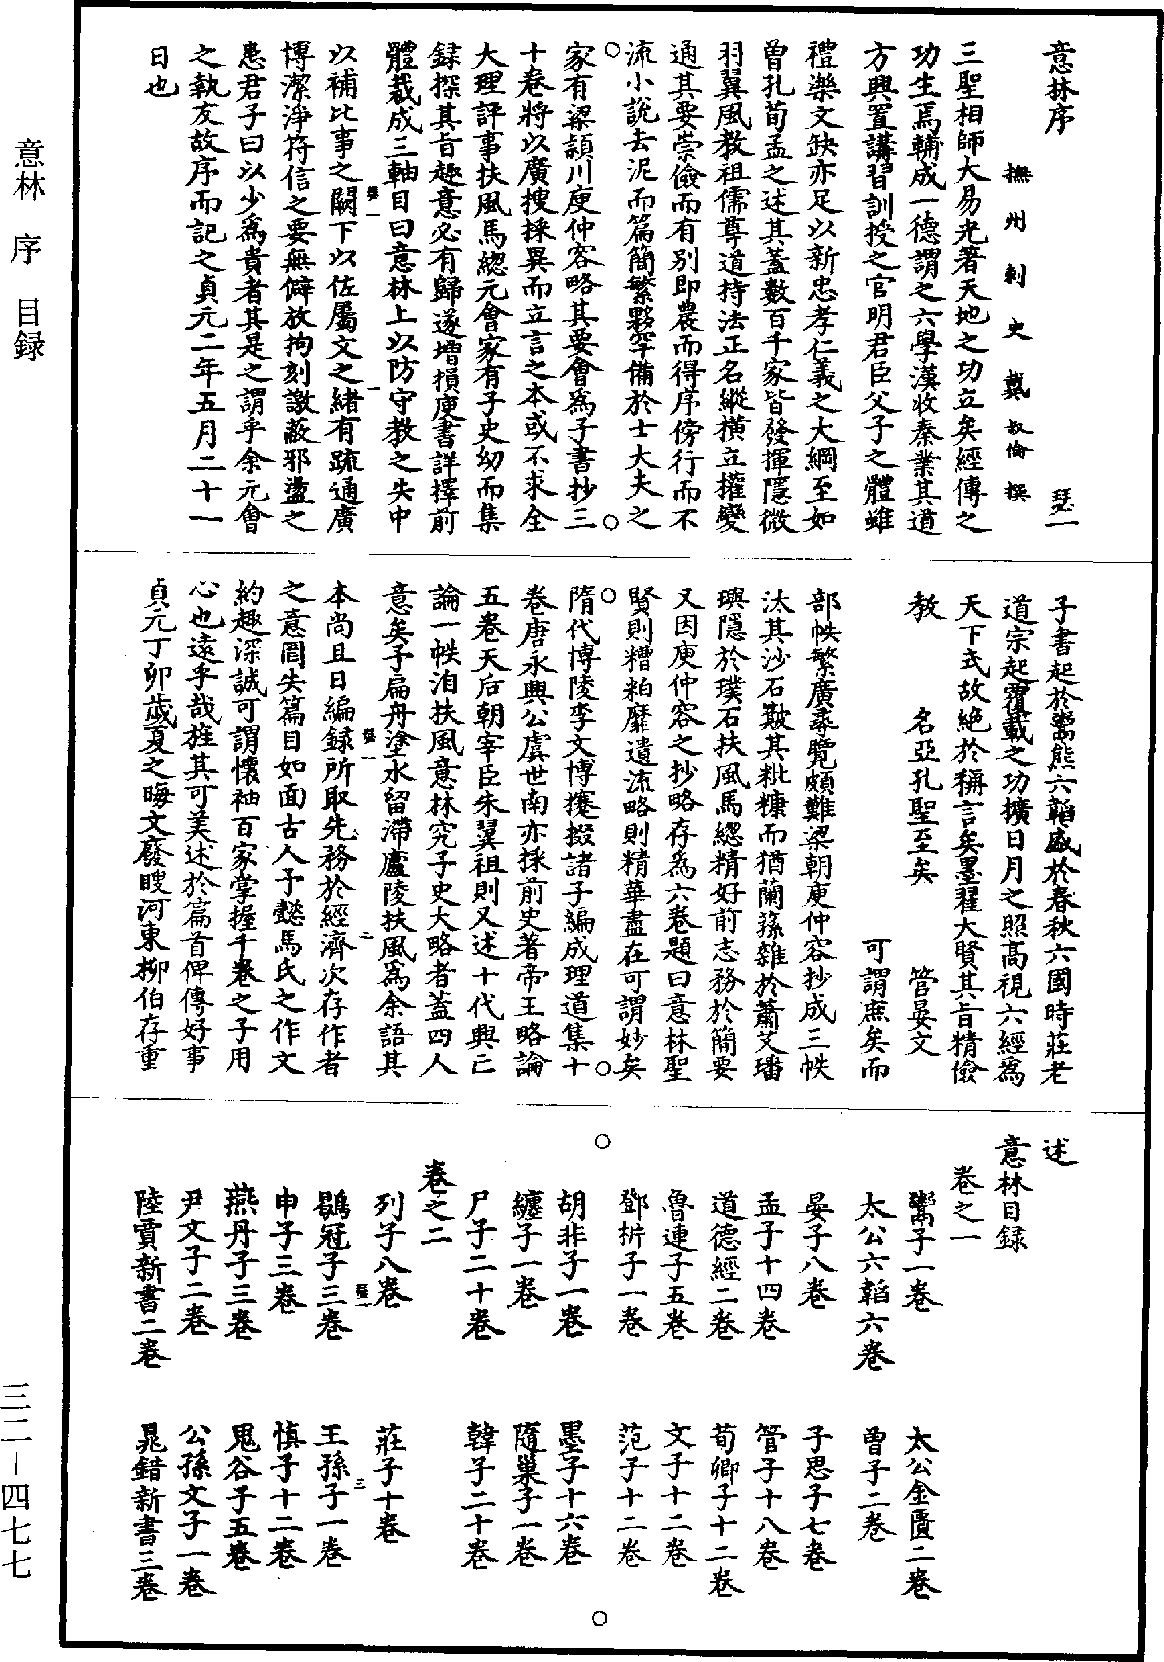 意林序 瑟一
撫州刺史戴叔倫撰
三聖相師大易光著天地之功立矣經傳之
功生焉輔成一德謂之六學漢收秦業其道
方興置講習訓授之官明君臣父子之體雖
禮樂文缺亦足以新忠孝仁義之大綱至如
曾孔荀孟之述其蓋數百千家皆發揮隱微
羽翼風教祖儒尊道持法正名縱橫立權變
通其要崇儉而有別即農而得序傍行而不
流小說去泥而篇簡繁夥罕備於士大夫之
家有梁潁川庾仲容略其要會爲子書抄三
十卷將以廣搜採異而立言之本或不求全
大理評事扶風馬總元會家有子史幼而集
録探其旨趣意必有歸遂增損庾書詳擇前
體裁成三軸目曰意林上以防守教之失中
以補比事之闕下以佐屬文之緒有疏通廣
博潔淨符信之要無僻放拘刻譏蔽邪盪之
患君子曰以少爲貴者其是之謂乎余元會
之執友故序而記之貞元二年五月二十一
日也
子書起於鬻熊六韜盛於春秋六國時莊老
道宗起覆載之功擴日月之照高視六經爲
天下式故絶於稱言矣墨翟大賢其旨精儉
教 名亞孔聖至矣 管晏文
可謂庶矣而
部帙繁廣尋覽頗難梁朝庾仲容抄成三帙
汰其沙石簸其粃糠而猶蘭蓀雜於蕭艾璠
璵隱於璞石扶風馬總精好前志務於簡要
又因庾仲容之抄略存爲六卷題曰意林聖
賢則糟粕靡遺流略則精華盡在可謂妙矣
隋代博陵李文博攓掇諸子編成理道集十
卷唐永興公虞世南亦採前史著帝王略論
五卷天后朝宰臣朱翼祖則又述十代興亡
論一帙洎扶風意林究子史大略者蓋四人
意矣予扁舟塗水留滯廬陵扶風爲余語其
本尚且日編録所取先務於經濟次存作者
之意罔失篇目如面古人予懿馬氏之作文
約趣深誠可謂懷袖百家掌握千卷之子用
心也遠乎哉旌其可美述於篇首俾傳好事
貞元丁卯歲夏之晦文廢瞍河東柳伯存重
述
意林目録
卷之一
鬻子一卷 太公金匱二卷
太公六韜六卷 曾子二卷
晏子八卷 子思子七卷
孟子十四卷 管子十八卷
道德經二卷 荀卿子十二卷
魯連子五卷 文子十二卷
鄧析子一卷 范子十二卷
胡非子一卷 墨子十六卷
纏子一卷 隨巢子一卷
尸子二十卷 韓子二十卷
卷之二
列子八卷 莊子十卷
鶡冠子三卷 王孫子一卷
申子三卷 慎子十二卷
燕丹子三卷 鬼谷子五卷
尹文子二卷 公孫文子一卷
陸賈新書二卷 晁錯新書三卷
意林 序 目録
三二－四七七